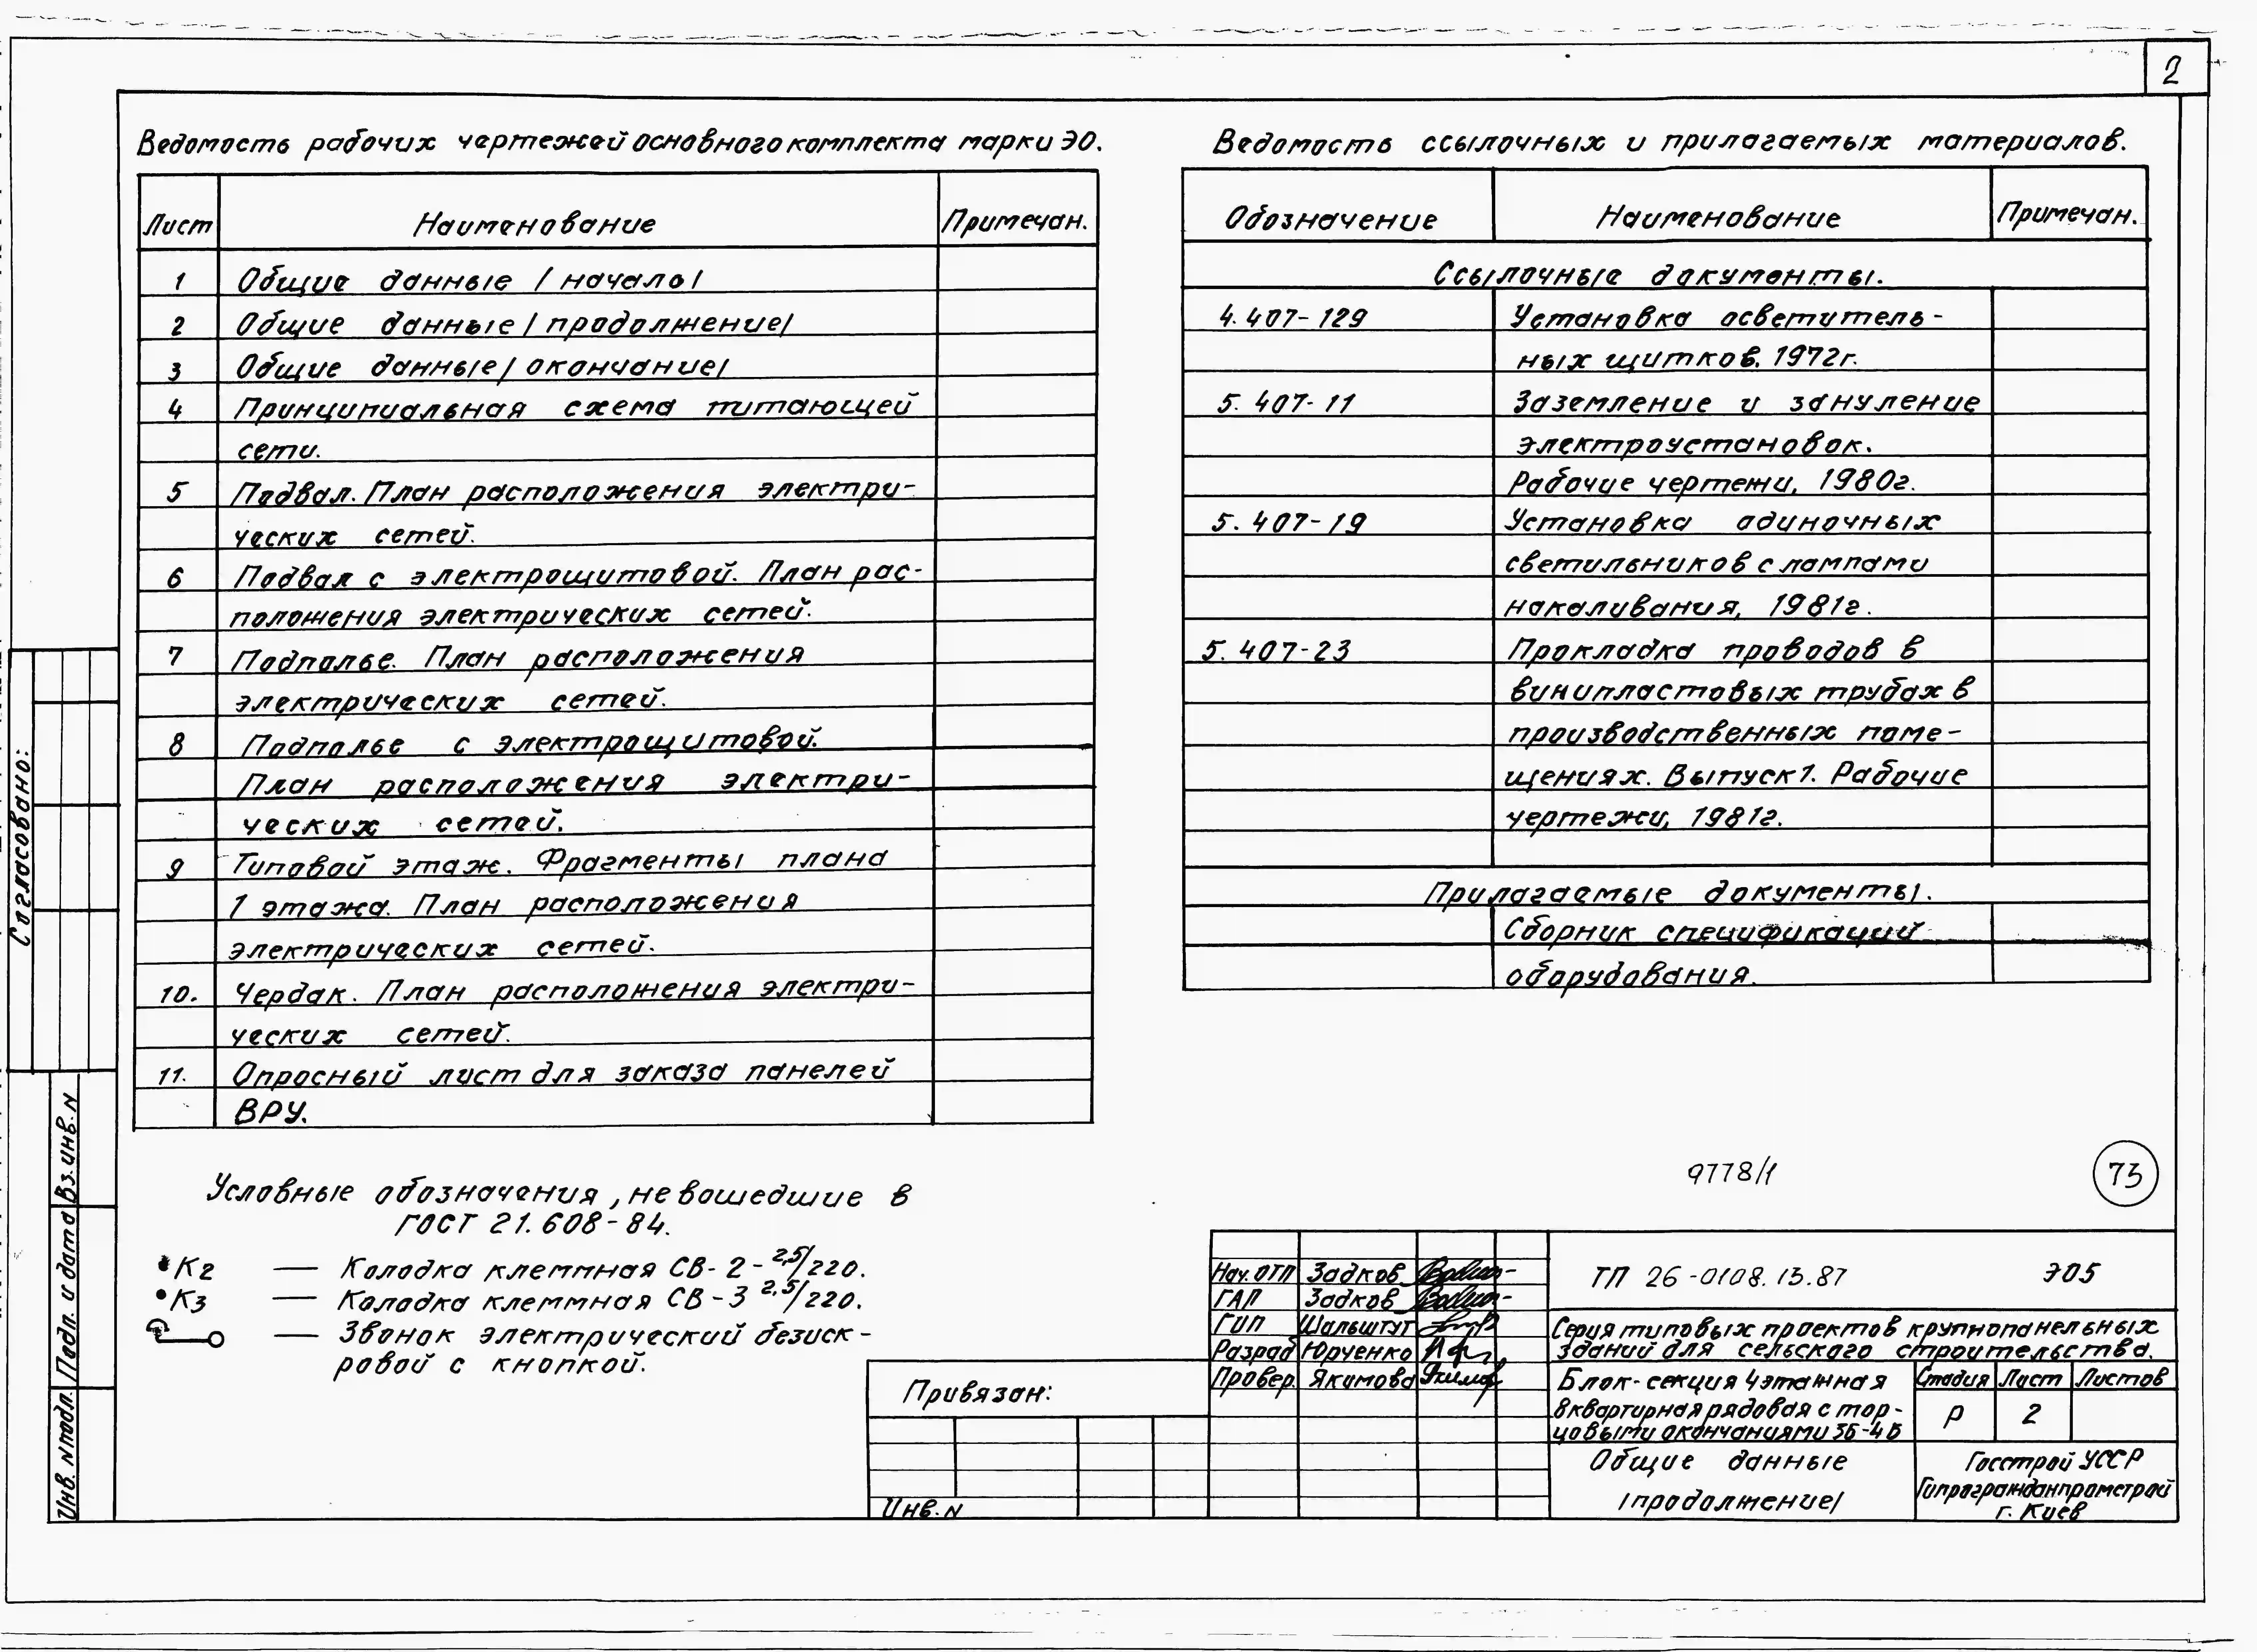 2
Ведомость рабочих чертежей основного комплекта марки ЭО.
Лист Наименование Примечан.
1 Общие данные /начало/
2 Общие данные /продолжение/
3 Общие данные /окончание/
4 Принципиальная схема питающей
сети.
5 Подвал. План расположения электри-
ческих сетей.
6 Подвал с электрощитовой. План рас-
положения электрических сетей.
7 Подполье. План расположения
электрических сетей.
8 Подполье с электрощитовой.
План расположения электри-
ческих сетей.
9 Типовой этаж. Фрагменты плана
1 этажа. План расположения
электрических сетей.
10. Чердак. План расположения электри-
ческих сетей.
11. Опросный лист для заказа панелей
ВРУ.
Ведомость ссылочных и прилагаемых материалов.
Обозначение Наименование Примечан.
Ссылочные документы.
4.407-129 Установка осветитель-
ных щитков. 1972г.
5.407-11 Заземление и зануление
электроустановок.
Рабочие чертежи, 1980г.
5.407-19 Установка одиночных
светильников с лампами
накаливания, 1981г.
5.407-23 Прокладка проводов в
винипластовых трубах в
производственных поме-
щениях. Выпуск 1. Рабочие
чертежи, 1981г.
Прилагаемые документы.
Сборник спецификаций
оборудования.
Условные обозначения, не вошедшие в
ГОСТ 21.608-84.
К2 — Колодка клеммная СВ-2-2,5/220.
К3 — Колодка клеммная СВ-3 2,5/220.
— Звонок электрический безиск-
ровой с кнопкой.
9778/1
73
Согласовано:
Инв. N подл. Подп. и дата Вз. инв. N
Привязан:
Инв. N
Нач. ОТП Задков
ГАП Задков
ГИП Шальштут
Разраб Юрченко
Провер. Якимова
ТП 26-0108.13.87 ЭО5
Серия типовых проектов крупнопанельных
зданий для сельского строительства.
Блок-секция 4 этажная
8 квартирная рядовая с тор-
цовыми окончаниями 3Б-4Б
Стадия Лист Листов
Р 2
Общие данные
/продолжение/
Госстрой УССР
Гипрогражданпромстрой
г. Киев